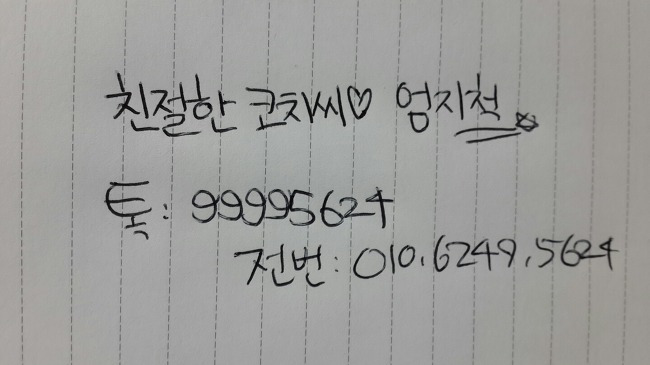 친절한 코차씨♡ 엄지척
톡: 99995624
전번: 010.6249.5624